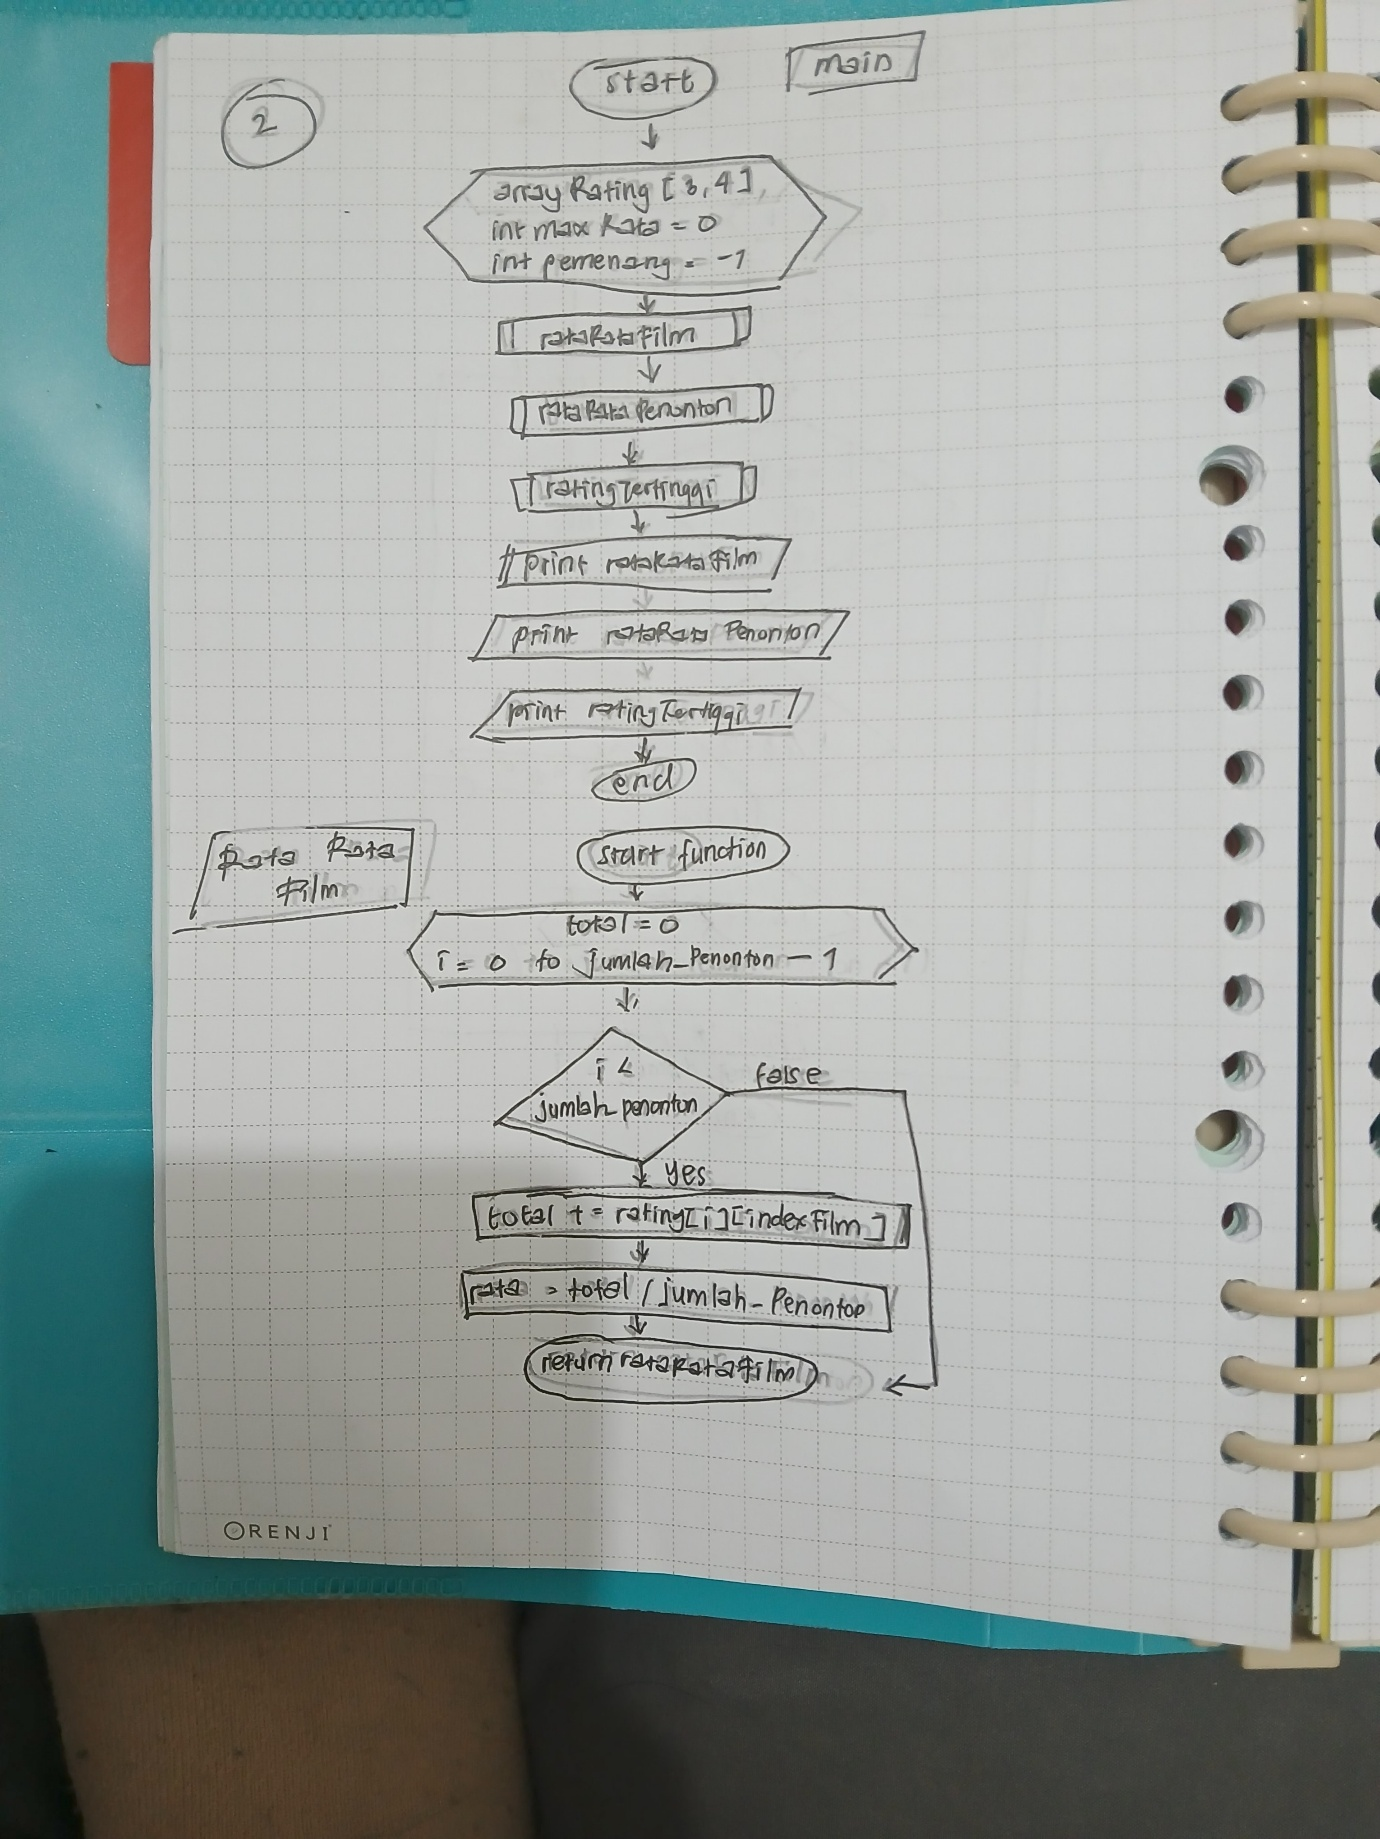 2
start
main
array Rating [3,4]
int max Rata = 0
int pemenang = -1
rataRataFilm
rataRata Penonton
ratingTertinggi
print rataRataFilm
print rataRata Penonton
print ratingTertiggi
end
Rata Rata
Film
start function
total = 0
i = 0 to jumlah_Penonton - 1
i <
jumlah penonton
false
yes
total += rating[i][indexFilm]
rata = total / jumlah_Penonton
return rataRatafilm
ORENJI